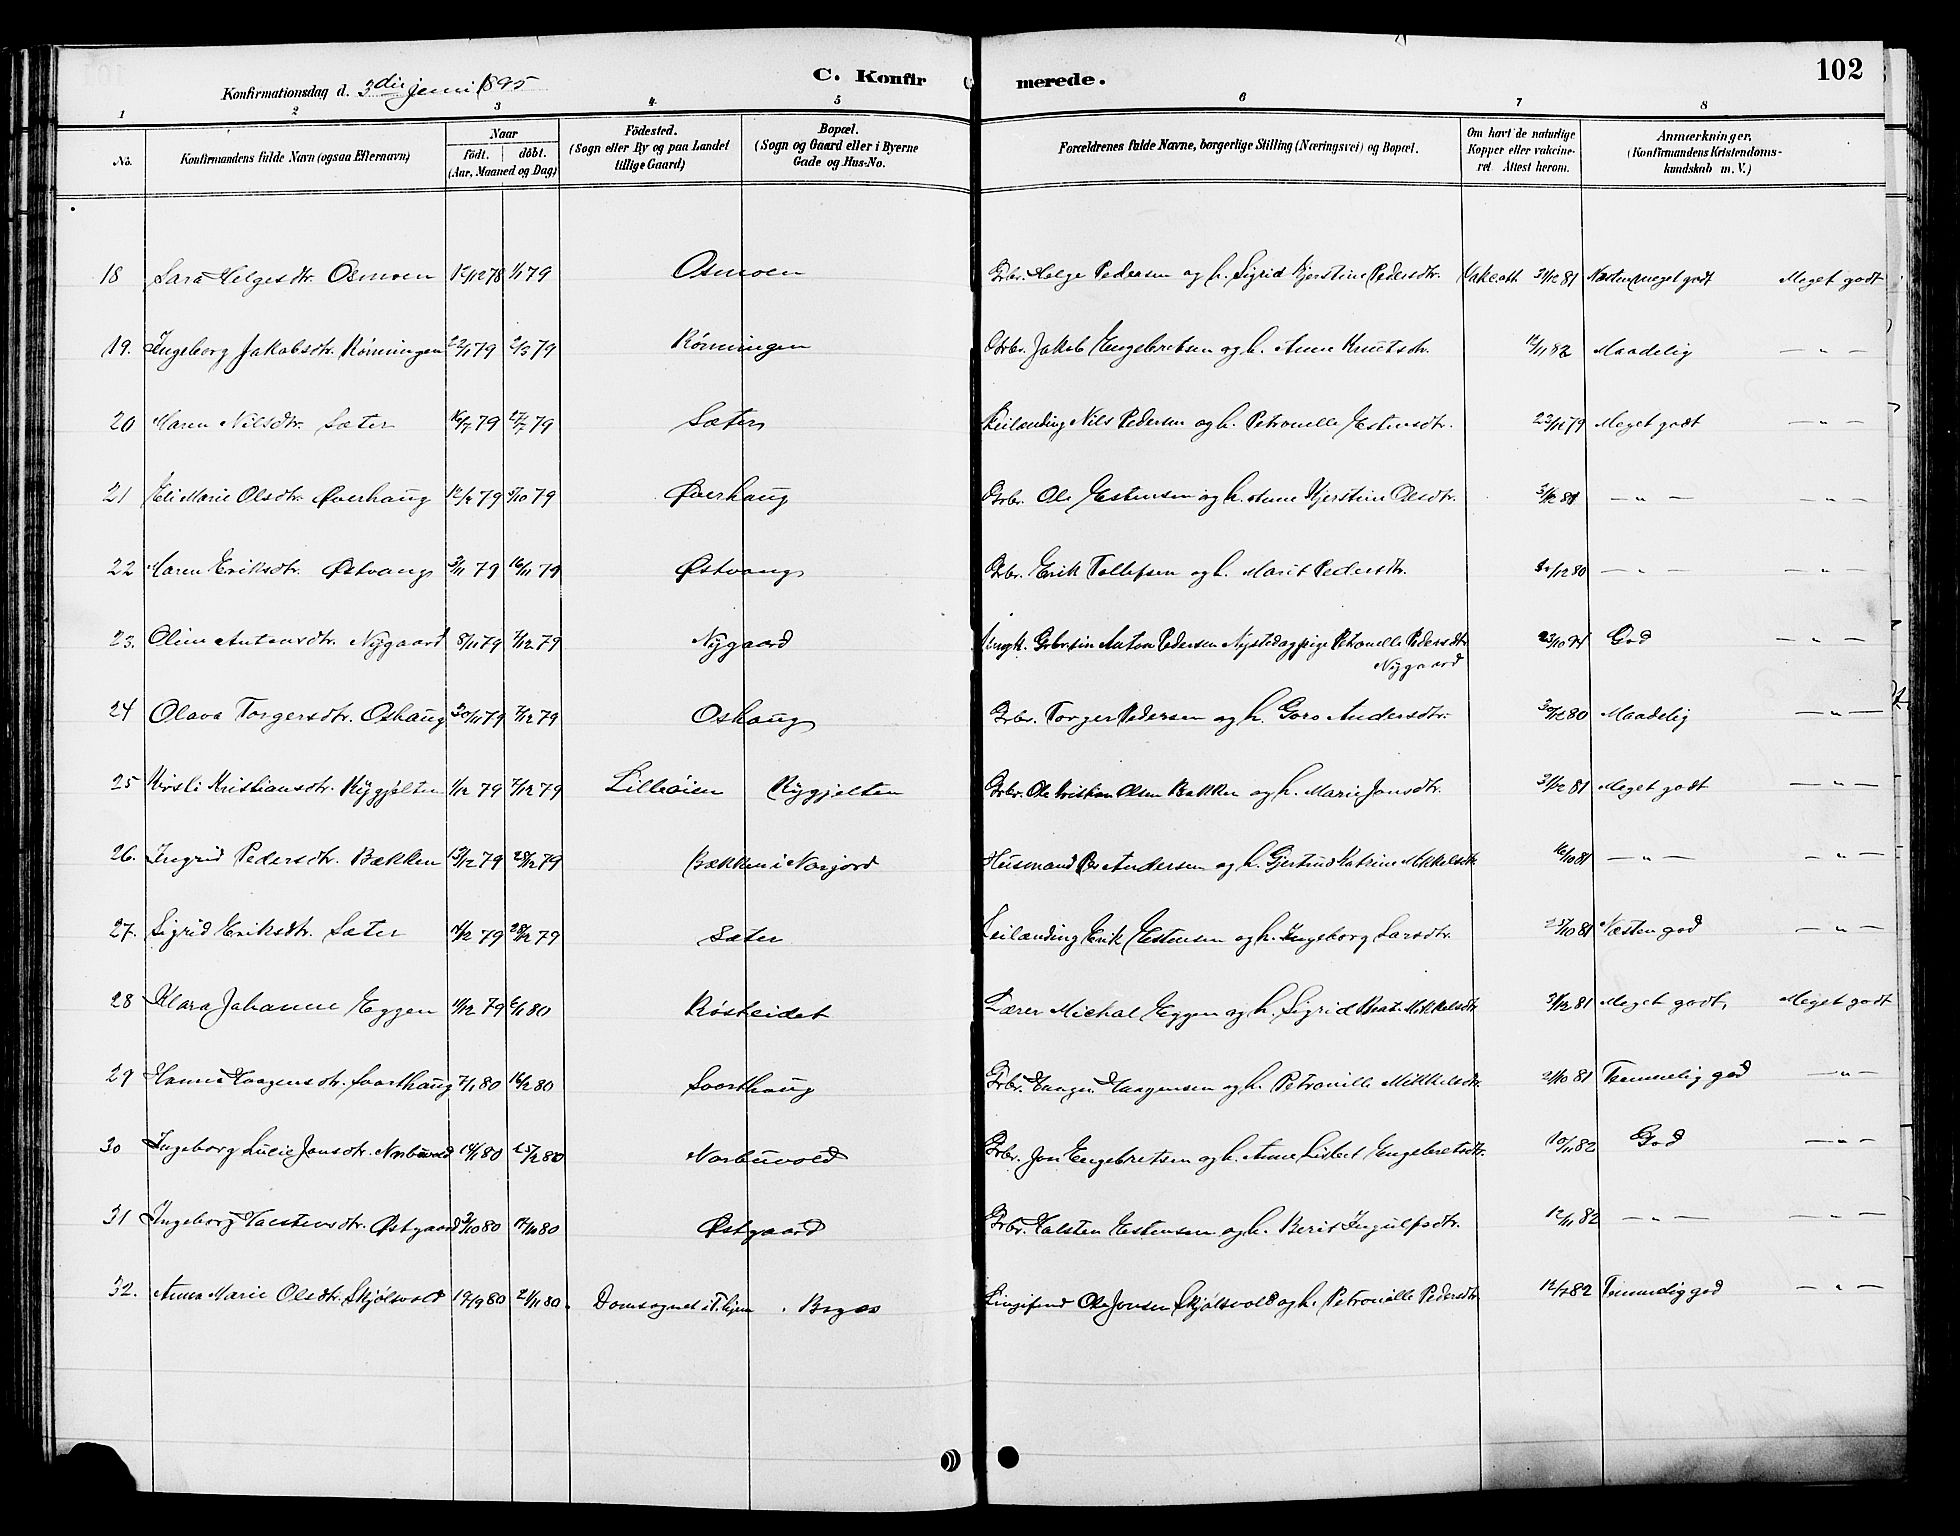 C. Konfirmerede.
102
Konfirmationsdag d. 3die juni 1895
1 2 3 4 5 6 7 8
No. Konfirmandens fulde Navn (ogsaa Efternavn) Naar födt. döbt. (Aar, Maaned og Dag) Födested. (Sogn eller By og paa Landet tillige Gaard) Bopæl. (Sogn og Gaard eller i Byerne Gade og Hus-No. Forældrenes fulde Navne, borgerlige Stilling (Næringsvei) og Bopæl. Om havt de naturlige Kopper eller vakcineret Attest herom. Anmærkninger. (Konfirmandens Kristendomskundskab m. V.)
18 Sara Helgesdtr. Osmoen 12/12 78 1/1 79 Osmoen Grbr. Helge Pedersen og h. Sigrid Kjerstine Pedersdtr. Vakc.att. 31/12 81 Næsten meget godt Meget godt
19. Ingeborg Jakobsdtr. Rönningen 22/1 79 2/3 79 Rönningen Grbr. Jakob Engebretsen og h. Anne Knutsdtr. 12/11 82 Maadelig — " —
20 Maren Nilsdtr. Sæter 16/7 79 27/7 79 Sæter Leilænding Nils Pedersen og h. Petronelle Estensdtr. 22/11 79 Meget godt — " —
21 Eli Marie Olsdtr. Øverhaug 12/9 79 5/10 79 Øverhaug Grbr. Ole Estensen og h. Anne Kjerstine Olsdtr. 31/12 81 — " — — " —
22 Maren Eriksdtr. Østvang 3/11 79 16/11 79 Østvang Grbr. Erik Tollefsen og h. Marit Pedersdtr. /12 80 — " — — " —
23. Oline Antonsdtr. Nygaard 8/11 79 7/12 79 Nygaard Ungk. Grbr.sön Anton Pedersen Nysted og pige Petronelle Pedersdtr. Nygaard 23/10 94 God — " —
24 Olava Torgersdtr. Oshaug 20/11 79 7/12 79 Oshaug Grbr. Torger Pedersen og h. Goro Andersdtr. 30/12 80 Maadelig — " —
25 Kirsti Kristiansdtr. Rygjelten 1/12 79 7/12 79 Lilleöien Rygjelten Grbr. Ole Kristian Olsen Bakken og h. Marie Jonsdtr. 31/12 81 Meget godt — " —
26. Ingrid Pedersdtr. Bækken 13/12 79 28/12 79 Bækken i Norjord Husmand Per Andersen og h. Gjertrud Katrine Mikkelsdtr. 16/10 81 — " — — " —
27. Sigrid Eriksdtr. Sæter 14/12 79 28/12 79 Sæter Leilænding Erik Estensen og h. Ingeborg Larsdtr. 25/10 81 Næsten god — " —
28 Klara Johanne Eggen 11/12 79 6/1 80 Rösteidet Lærer Michal Eggen og h. Sigrid Beate Mikkelsdtr. 31/12 81 Meget godt, Meget godt
29 Hanna Haagensdtr. Svarthaug 7/1 80 16/2 80 Svarthaug Grbr. Haagen Haagensen og h. Petronille Mikkelsdtr. 21/10 81 Temmelig god — " —
30 Ingeborg Lucie Jonsdtr. Norbuvold 14/1 80 25/2 80 Norbuvold Grbr. Jon Engebretsen og h. Anne Lisbet Engebretsdtr. 10/11 82 God — " —
31 Ingeborg Halstensdtr. Østgaard 3/10 80 17/10 80 Østgaard Grbr. Halsten Estensen og h. Berit Ingulfsdtr. 12/11 82 — " — — " —
32. Anna Marie Olsdtr. Skjölsvold 19/9 80 21/11 80. Domsognet i T.hjem Bryæs Ole Jonsen Skjölsvold og h. Petronelle Pedersdtr. 12/7 82 Temmelig god — " —